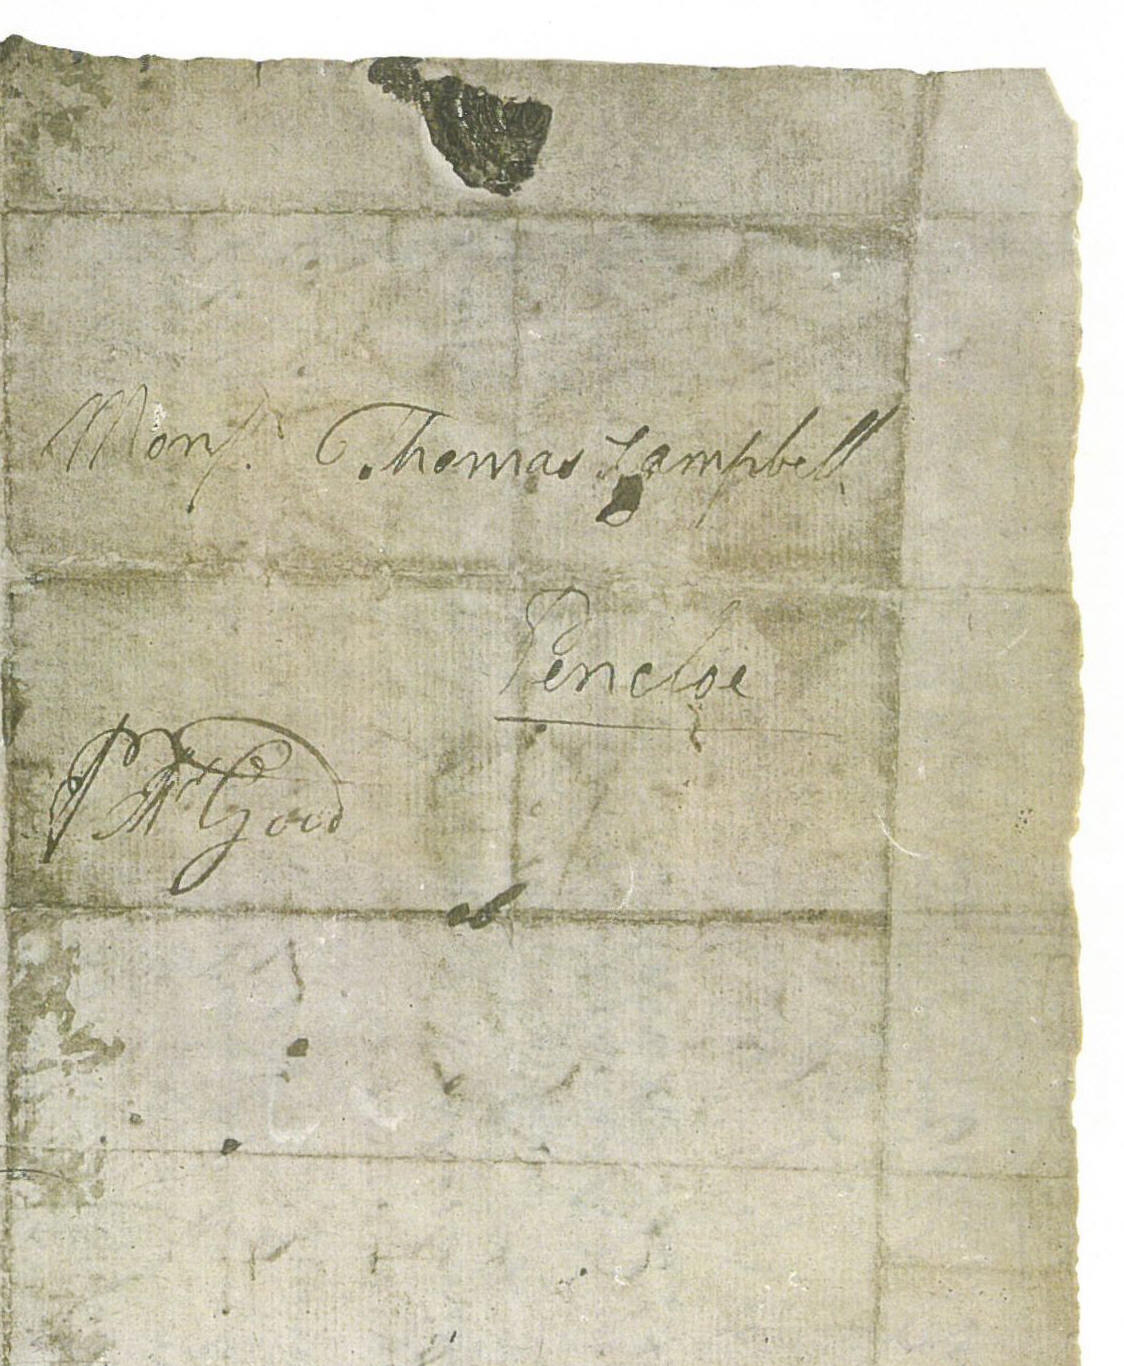 Monsr. Thomas Campbell
Pencloe
Pr Mr Gow